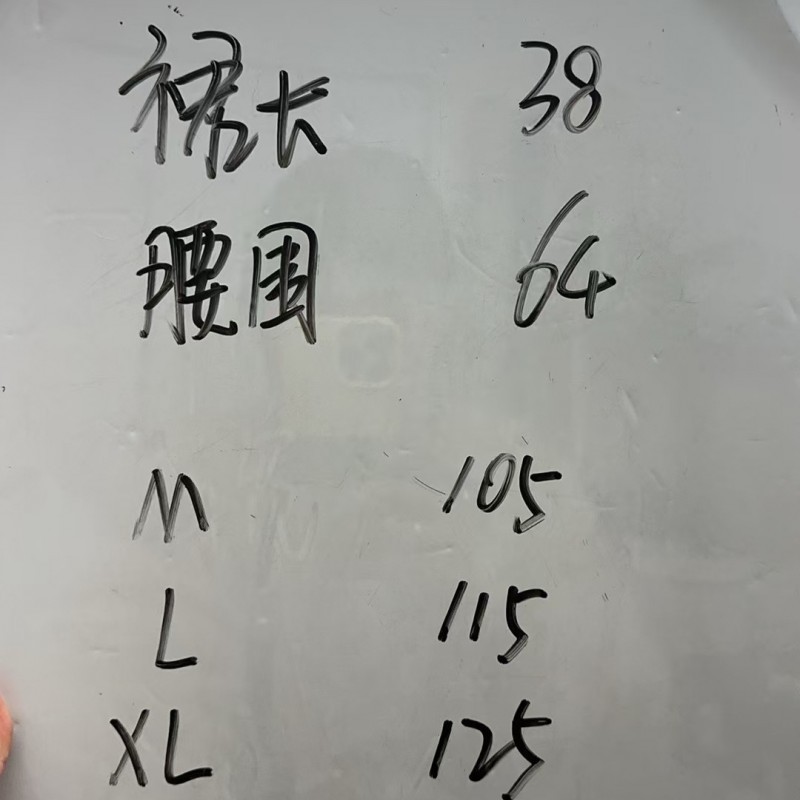 裙长 38
腰围 64
M 105
L 115
XL 125